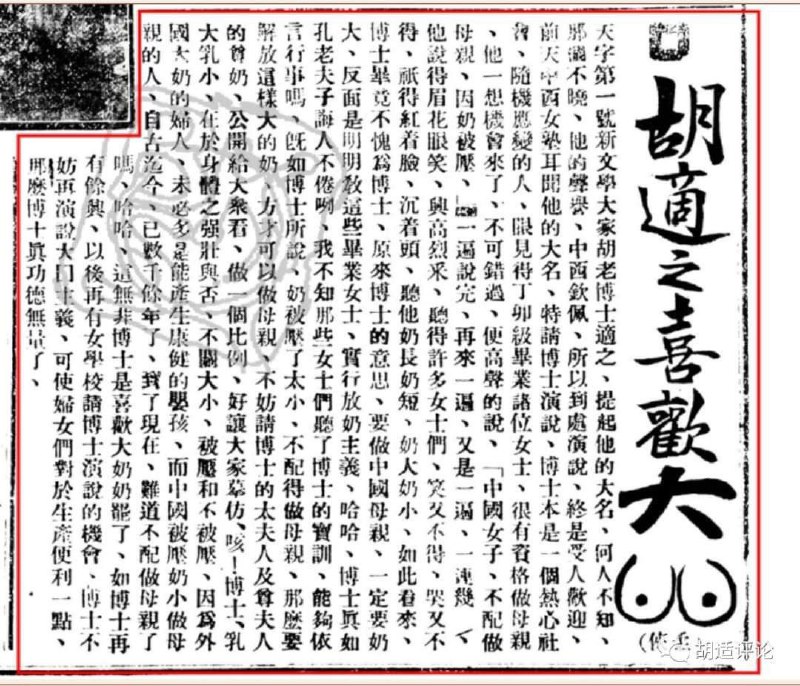 胡適之喜歡大
(依
天字第一號新文學大家胡老博士適之、提起他的大名、何人不知、
那個不曉、他的聲譽、中西欽佩、所以到處演說、終是受人歡迎、
前天中西女塾耳聞他的大名、特請博士演說、博士本是一個熱心社
會、隨機應變的人、眼見得丁卯級畢業諸位女士、很有資格做母親
、他一想機會來了、不可錯過、便高聲的說、「中國女子、不配做
母親、因奶被壓、」一遍說完、再來一遍、又是一遍、一連幾、
他說得眉花眼笑、興高烈采、聽得許多女士們、笑又不得、哭又不
得、祇得紅着臉、沉着頭、聽他奶長奶短、奶大奶小、如此看來、
博士畢竟不愧為博士、原來博士的意思、要做中國母親、一定要奶
大、反面是明明教這些畢業女士、實行放奶主義、哈哈、博士眞如
孔老夫子誨人不倦咧、我不知那些女士們聽了博士的寶訓、能夠依
言行事嗎、既如博士所說、奶被壓了太小、不配得做母親、那麼要
解放這樣大的奶、方才可以做母親、不妨請博士的太夫人及尊夫人
的尊奶、公開給大衆看、做一個比例、好讓大家摹仿、咳！博士、乳
大乳小、在於身體之強壯與否、不關大小、被壓和不被壓、因為外
國大奶的婦人、未必多是能產生康健的嬰孩、而中國被壓奶小做母
親的人、自古迄今、已數千餘年了、到了現在、難道不配做母親了
嗎、哈哈、這無非博士是喜歡大奶奶罷了、如博士再
有餘興、以後再有女學校請博士演說的機會、博士不
妨再演說大口主義、可使婦女們對於生產便利一點、
那麼博士眞功德無量了、
胡适评论